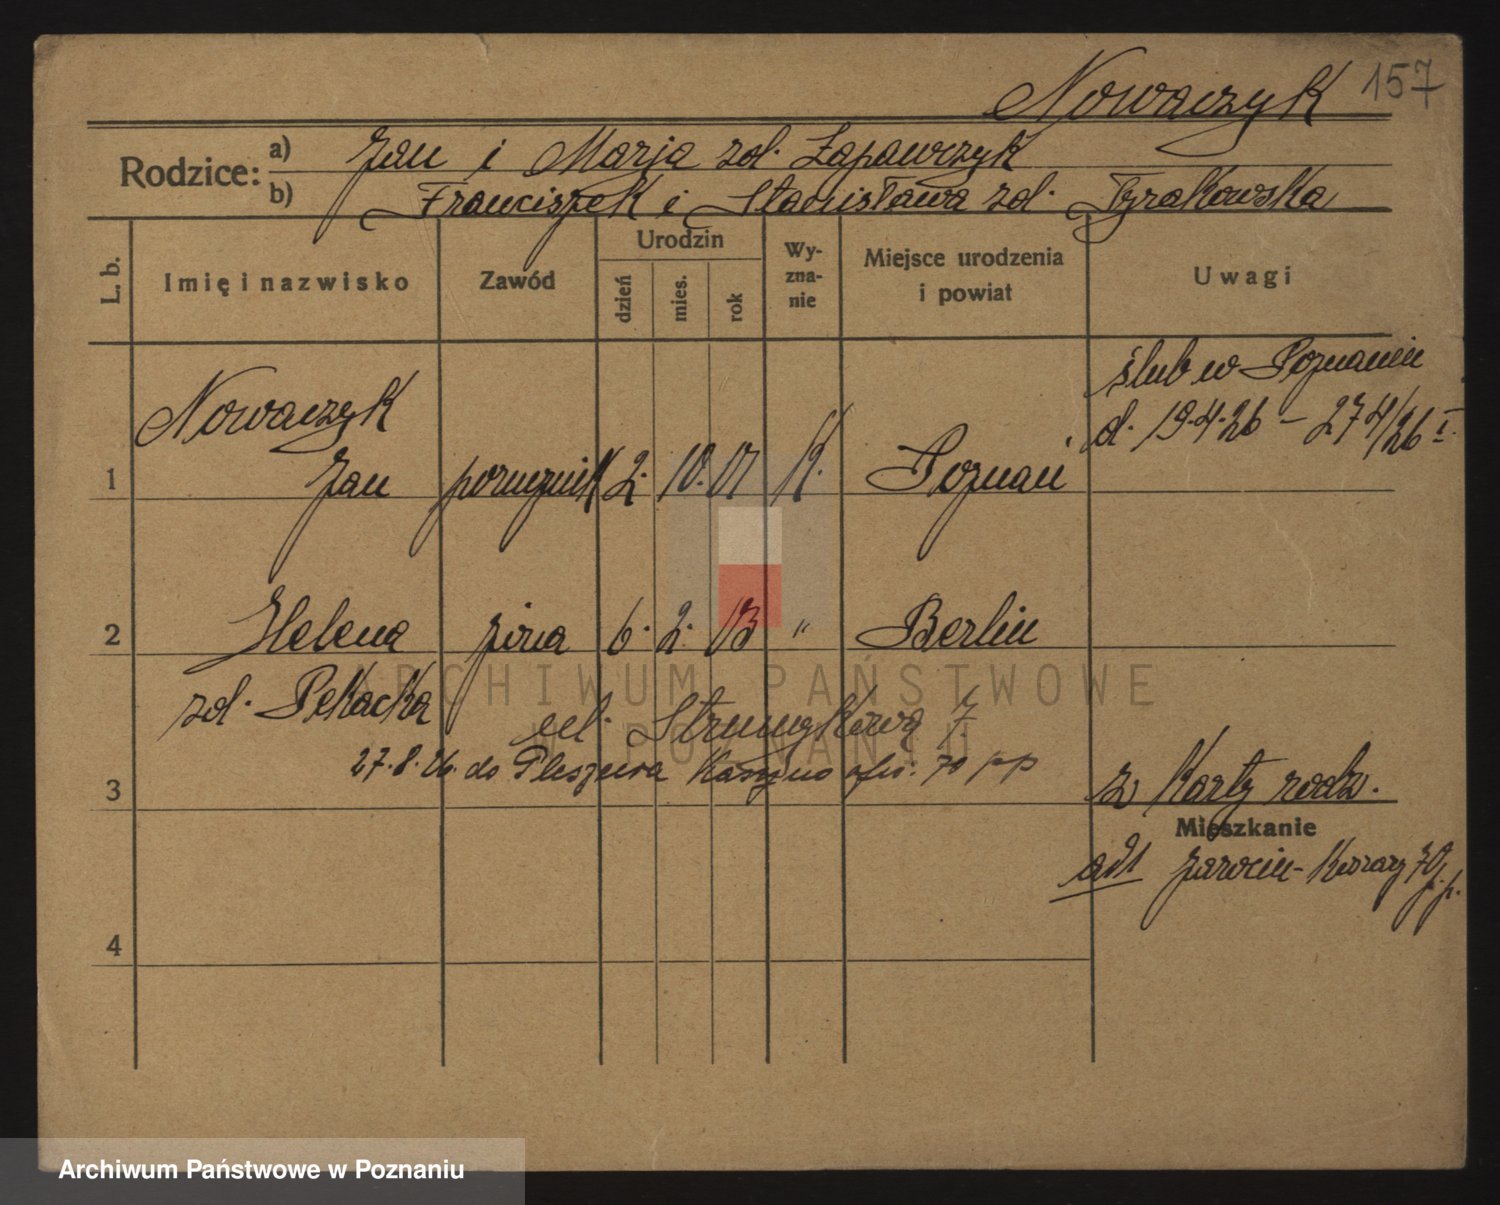 Nowaczyk 157
Rodzice:
a) Jan i Marja zd. Łapawczyk
b) Franciszek i Stanisława zd. Tyrakowska
L. b.
Imię i nazwisko
Zawód
Urodzin
dzień
mies.
rok
Wy-
zna-
nie
Miejsce urodzenia
i powiat
Uwagi
ślub w Poznaniu
d. 19.4.26 – 274/26 I.
Nowaczyk
1 Jan porucznik 2. 10. 01 K. Poznań
2 Helena żona 6. 2. 03 " Berlin
zd. Pekacka
ul. Strumykowa 7.
27.8.26. do Pleszewa Kasyno ofic. 70 pp
3
z Karty rodz.
Mieszkanie
Jarocin - Koszary 70 p.p.
4
ARCHIWUM PAŃSTWOWE
W POZNANIU
Archiwum Państwowe w Poznaniu